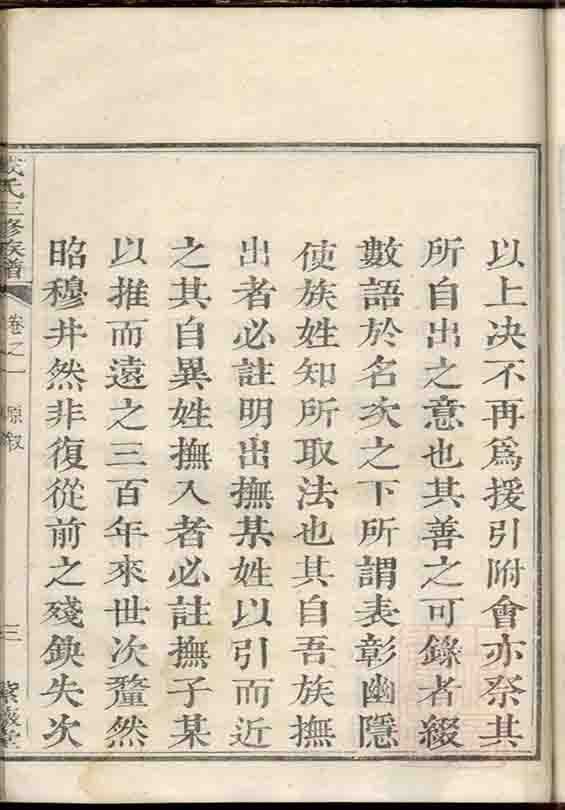 以上決不再爲援引附會亦祭其
所自出之意也其善之可錄者綴
數語於名次之下所謂表彰幽隱
使族姓知所取法也其自吾族撫
出者必註明出撫某姓以引而近
之其自異姓撫入者必註撫子某
以推而遠之三百年來世次釐然
昭穆井然非復從前之殘鈌失次
氏三修族譜
卷之一
原敘
三